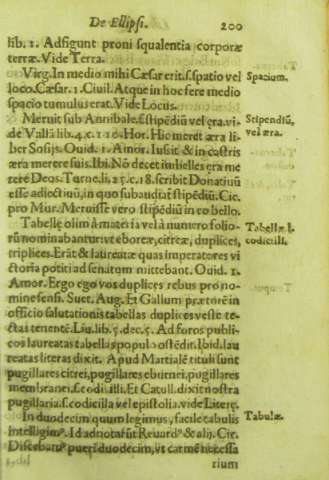 De Ellipsi. 200
lib. 1. Adfigunt proni squalentia corpora
terræ. Vide Terra.
Virg. In medio mihi Cæsar erit. s. spatio vel Spacium.
loco. Cæsar. 1. Civil. Atque in hoc fere medij
spacio tumulus erat. Vide Locus.
Meruit sub Annibale. s. stipẽdiũ vel æra. vi- Stipendiũ,
de Vallã lib. 4. c. 110. Hor. Hic meret æra li- vel æra.
ber Sosijs. Ouid. 1. Amor. Iusit & in castris
æra merere suis. Ibi. No decet imbelles era me
rere Deos. Turne. li. 25. c. 18. scribit Donatiuũ
esse adiectiuũ, in quo subauditur stipẽdiũ. Cic.
pro Mur. Meruisse vero stipẽdiũ in eo bello.
Tabellę olim à materia vel à numero folio- Tabellæ l.
rũ nominabantur: vt eboreæ, citreæ, duplices, codicilli.
triplices. Erãt & laureatæ quas imperatores vi
ctoria potiti ad senatum mittebant. Ouid. 1.
Amor. Ergo ego vos duplices rebus pro no-
mine sensi. Suet. Aug. Et Gallum prætorẽ in
officio salutationis tabellas duplices veste te-
ctas tenentẽ. Liu. lib. 5. dec. 5. Ad foros publi-
cos laureatas tabellas populo ostẽdit. Ibid. lau
reatas literas dixit. Apud Martialẽ tituli sunt
pugillares citrei, pugillares eburnei, pugillares
membranei. s. codicilli. Et Catull. dixit nostra
pugillaria. s. codicilla vel epistolia. vide Literę.
In duodecim quum legimus, facile tabulis Tabulæ.
intelligimꝰ. Id adnotarũt Reuardꝰ & alij. Cic.
Discebamꝰ pueri duodecim, vt carmẽ necessa
rium